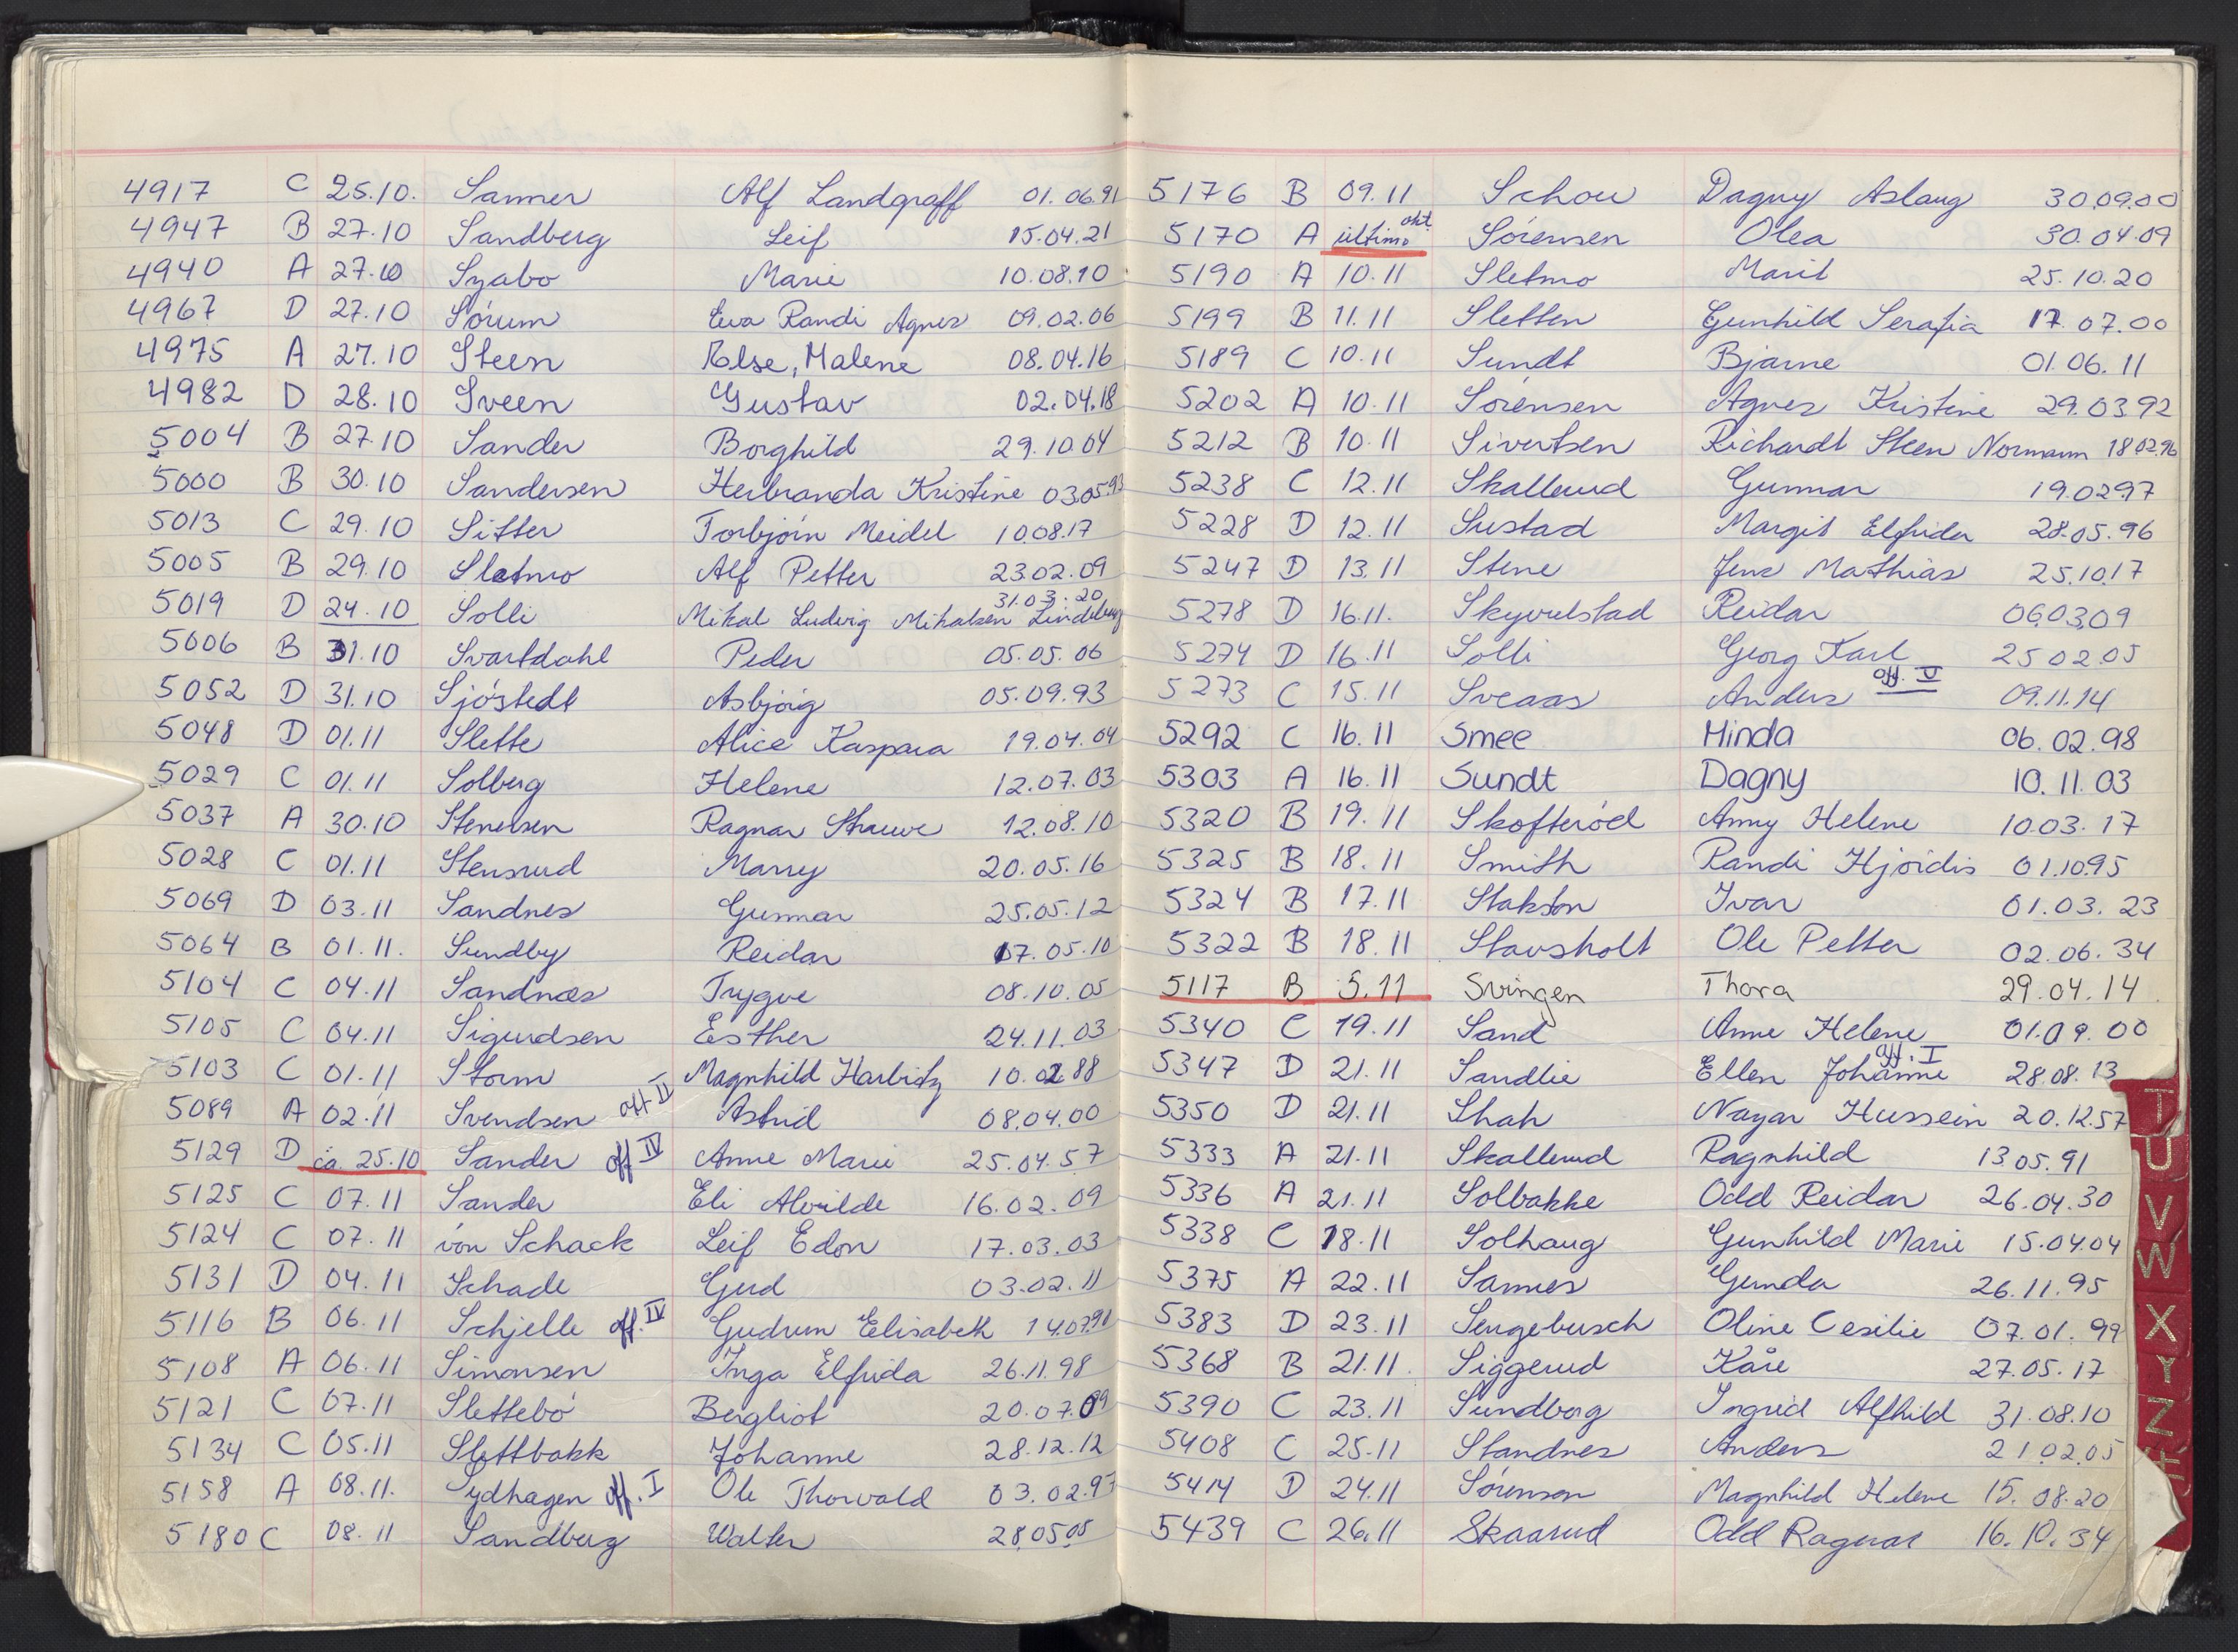 4917 C 25.10. Sanner Alf Landgraff 01.06.91
4947 B 27.10 Sandberg Leif 15.04.21
4940 A 27.10 Szabo Marie 10.08.10
4967 D 27.10 Sórum Eva Randi Agnes 09.02.06
4975 A 27.10 Steen Else, Malene 08.04.16
4982 D 28.10 Sveen Gustav 02.04.18
5004 B 27.10 Sander Borghild 29.10.04
5000 B 30.10 Sandersen Herbranda Kristine 03.05.93
5013 C 29.10 Sitter Torbjórn Meidel 10.08.17
5005 B 29.10 Sletmo Alf Petter 23.02.09
5019 D 24.10 Solli Mikal Ludvig Mikalsen Lindeberg 31.03.20
5006 B 31.10 Svartdahl Peder 05.05.06
5052 D 31.10 Sjóstedt Asbjórg 05.09.93
5048 D 01.11 Slette Alice Kaspara 19.04.04
5029 C 01.11 Solberg Helene 12.07.03
5037 A 30.10 Stenersen Ragnar Strauwe 12.08.10
5028 C 01.11 Stensrud Marry 20.05.16
5069 D 03.11 Sandnes Gunnar 25.05.12
5064 B 01.11. Sundby Reidar 17.05.10
5104 C 04.11 Sandnæs Trygve 08.10.05
5105 C 04.11 Sigurdsen Esther 24.11.03
5103 C 01.11 Storm Magnhild Harbitz 10.02.88
5089 A 02.11 Svendsen off II Astrid 08.04.00
5129 D ca. 25.10 Sander off IV Anne Marie 25.04.57
5125 C 07.11 Sander Eli Alvilde 16.02.09
5124 C 07.11 von Schack Leif Edon 17.03.03
5131 D 04.11 Schade Gerd 03.02.11
5116 B 06.11 Schjelle off. IV Gudrun Elisabeth 14.07.91
5108 A 06.11 Simonsen Inga Elfrida 26.11.98
5121 C 07.11 Slettebó Bergliot 20.07.09
5134 C 05.11 Slettbakk Johanne 28.12.12
5158 A 08.11. Sydhagen off. I Ole Thorvald 03.02.97
5180 C 08.11 Sandberg Walter 28.05.05
5176 B 09.11 Schou Dagny Aslaug 30.09.00
5170 A ultimo okt. Sórensen Olea 30.04.09
5190 A 10.11 Sletmo Marit 25.10.20
5199 B 11.11 Sletten Gunhild Serafia 17.07.00
5189 C 10.11 Sundt Bjarne 01.06.11
5202 A 10.11 Sórensen Agnes Kristine 29.03.92
5212 B 10.11 Sivertsen Richardt Steen Normann 18.02.96
5238 C 12.11 Skallerud Gunnar 19.02.97
5228 D 12.11 Sustad Margit Elfrida 28.05.96
5247 D 13.11 Stene Jens Mathias 25.10.17
5278 D 16.11. Skyvulstad Reidar 06.03.09
5274 D 16.11 Solli Georg Karl 25.02.05
5273 C 15.11 Sveaas Anders off. V 09.11.14
5292 C 16.11 Smee Minda 06.02.98
5303 A 16.11 Sundt Dagny 10.11.03
5320 B 19.11 Skofteród Anny Helene 10.03.17
5325 B 18.11 Smith Randi Hjórdis 01.10.95
5324 B 17.11 Stakston Ivar 01.03.23
5322 B 18.11 Stavsholt Ole Petter 02.06.34
5117 B 5.11 Svingen Thora 29.04.14
5340 C 19.11 Sand Anne Helene 01.09.00
5347 D 21.11 Sandlie Ellen Johanne off. I 28.08.13
5350 D 21.11 Shah Nayar Hussein 20.12.57
5333 A 21.11 Skallerud Ragnhild 13.05.91
5336 A 21.11 Solbakke Odd Reidar 26.04.30
5338 C 18.11 Solhaug Gunhild Marie 15.04.04
5375 A 22.11 Sannes Gunda 26.11.95
5383 D 23.11 Sengebusch Oline Cesilie 07.01.99
5368 B 21.11. Siggerud Kåre 27.05.17
5390 C 23.11 Sundborg Ingrid Alfhild 31.08.10
5408 C 25.11 Standnes Anders 21.02.05
5414 D 24.11 Sórensen Magnhild Helene 15.08.20
5439 C 26.11 Skaarud Odd Ragnar 16.10.34
T
U
V
W
X
Y
Z